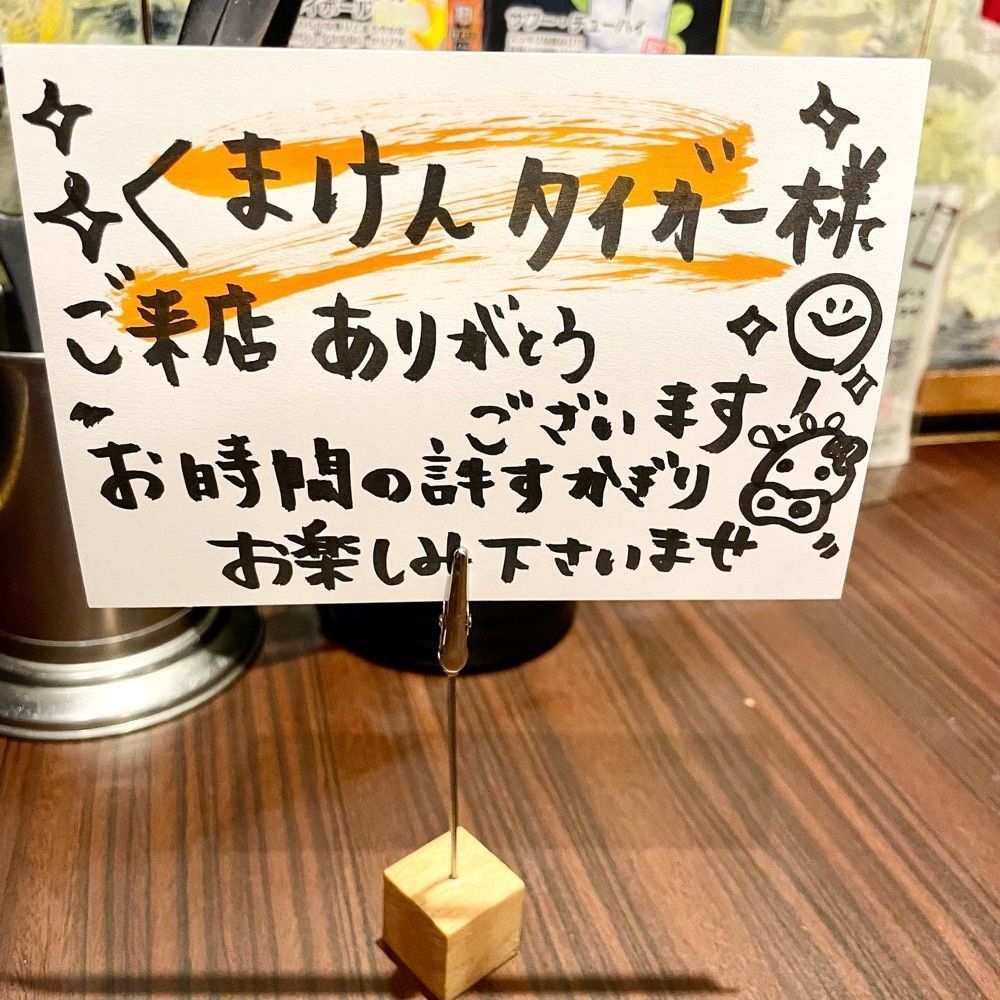 サワー・チューハイ
くまけんタイガー様
ご来店ありがとう
ございます!
お時間の許すかぎり
お楽しみ下さいませ